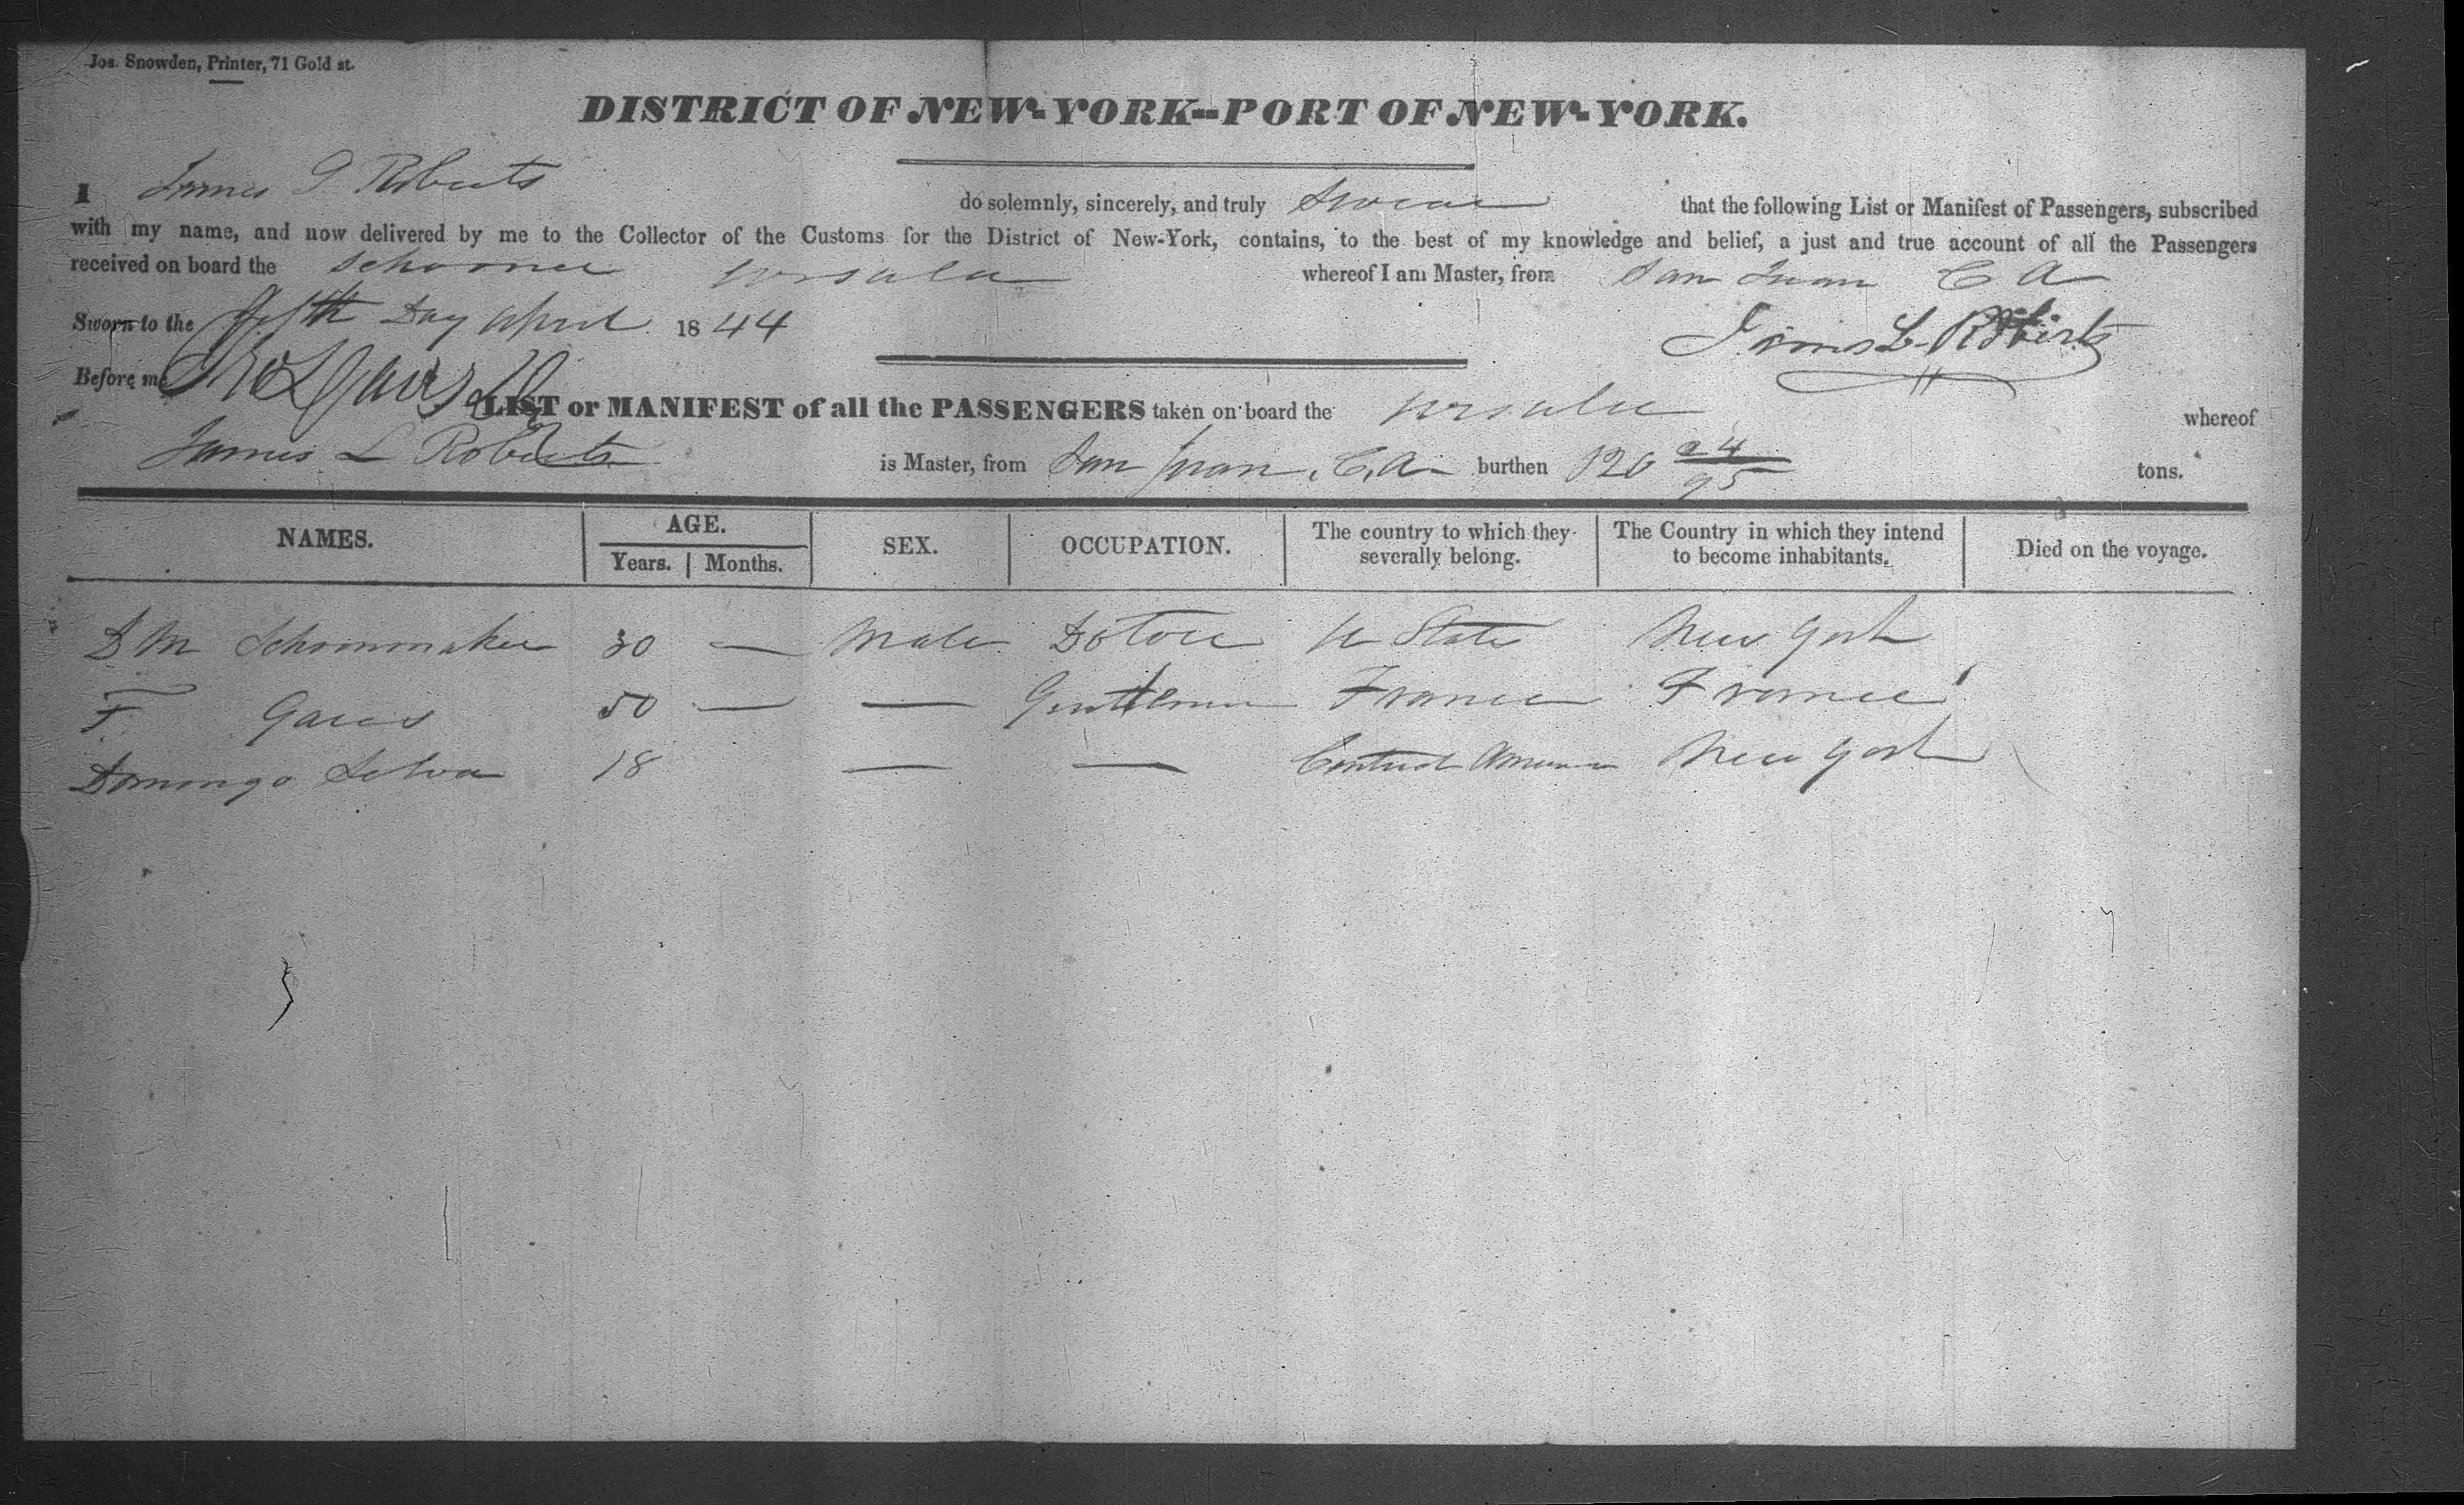 Jos. Snowden, Printer, 71 Gold st.
DISTRICT OF NEW-YORK--PORT OF NEW-YORK.
I James L Roberts do solemnly, sincerely, and truly Swear that the following List or Manifest of Passengers, subscribed
with my name, and now delivered by me to the Collector of the Customs for the District of New-York, contains, to the best of my knowledge and belief, a just and true account of all the Passengers
received on board the Schooner Ursula whereof I am Master, from San Juan C A
Sworn to the fifth Day April 1844
James L. Roberts
Before me
LIST or MANIFEST of all the PASSENGERS taken on board the Ursula whereof
James L Roberts is Master, from San Juan, C.A. burthen 120 24/95 tons.
NAMES. AGE. SEX. OCCUPATION. The country to which they severally belong. The Country in which they intend to become inhabitants. Died on the voyage.
Years. Months.
D M Schoonmaker 30 — Male Doctor U States New York
F. 50 — — Gentleman France France
Domingo Selva 18 — — Central America New York